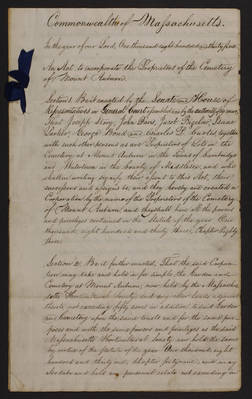 Commonwealth of Massachusetts.
In the year of our Lord, One thousand eight hundred and thirty five
An Act, to incorporate the Proprietors of the Cemetery
of Mount Auburn.
Section 1. Be it enacted by the Senate and House of
Representatives in General Court assembled by the authority of the same,
That Joseph Story, John Davis, Jacob Bigelow, Isaac
Parker, George Bond and Charles P. Curtis together
with such other persons as are Proprietors of Lots in the
Cemetery at Mount Auburn in the Towns of Cambridge
and Watertown in the County of Middlesex, and who
shall in writing signify their assent to this Act, their
successors and assigns be, and they hereby are created a
Corporation by the name of the Proprietors of the Cemetery
of Mount Auburn, and they shall have all the powers
and privileges contained in the Statute of the year One
thousand eight hundred and thirty three, Chapter Eighty
three.
Section 2. Be it further enacted, That the said Corpora-
tion may take and hold in fee simple the Garden and
Cemetery at Mount Auburn, now held by the Massachu-
setts Horticultural Society, and any other lands adjacent
thereto not exceeding fifty acres in addition to said Garden
and Cemetery upon the same trusts and for the same pur-
poses and with the same powers and privileges as the said
Massachusetts Horticultural Society now hold the same
by virtue of the Statute of the year One thousand eight
hundred and thirty one, Chapter sixty nine, and may
also take and hold any personal estate not exceeding in